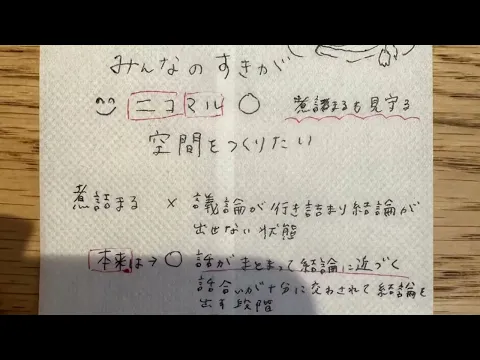 みんなのすきが
ニコマル〇 煮詰まるも見守る
空間をつくりたい
煮詰まる × 議論が行き詰まり結論が
出せない状態
本来は→〇 話がまとまって結論に近づく
話合いが十分に交わされて結論を
出す段階